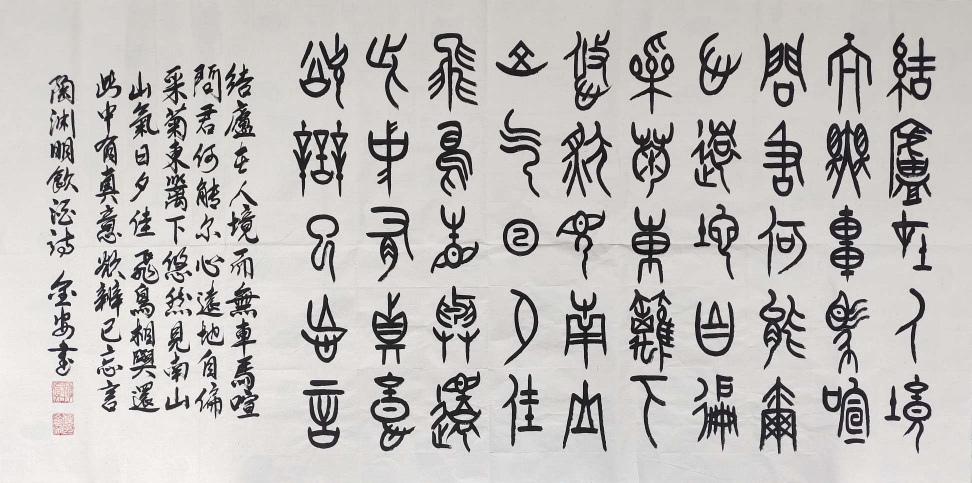 結廬在人境
而無車馬喧
問君何能爾
心遠地自偏
采菊東籬下
悠然見南山
山氣日夕佳
飛鳥相與還
此中有真意
欲辯已忘言
結廬在人境而無車馬喧
問君何能尔心遠地自偏
采菊東籬下悠然見南山
山氣日夕佳飛鳥相與還
此中有真意欲辨已忘言
陶渊明飲酒诗 金安書